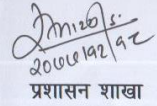 २०७८/१२/१८
प्रशासन शाखा